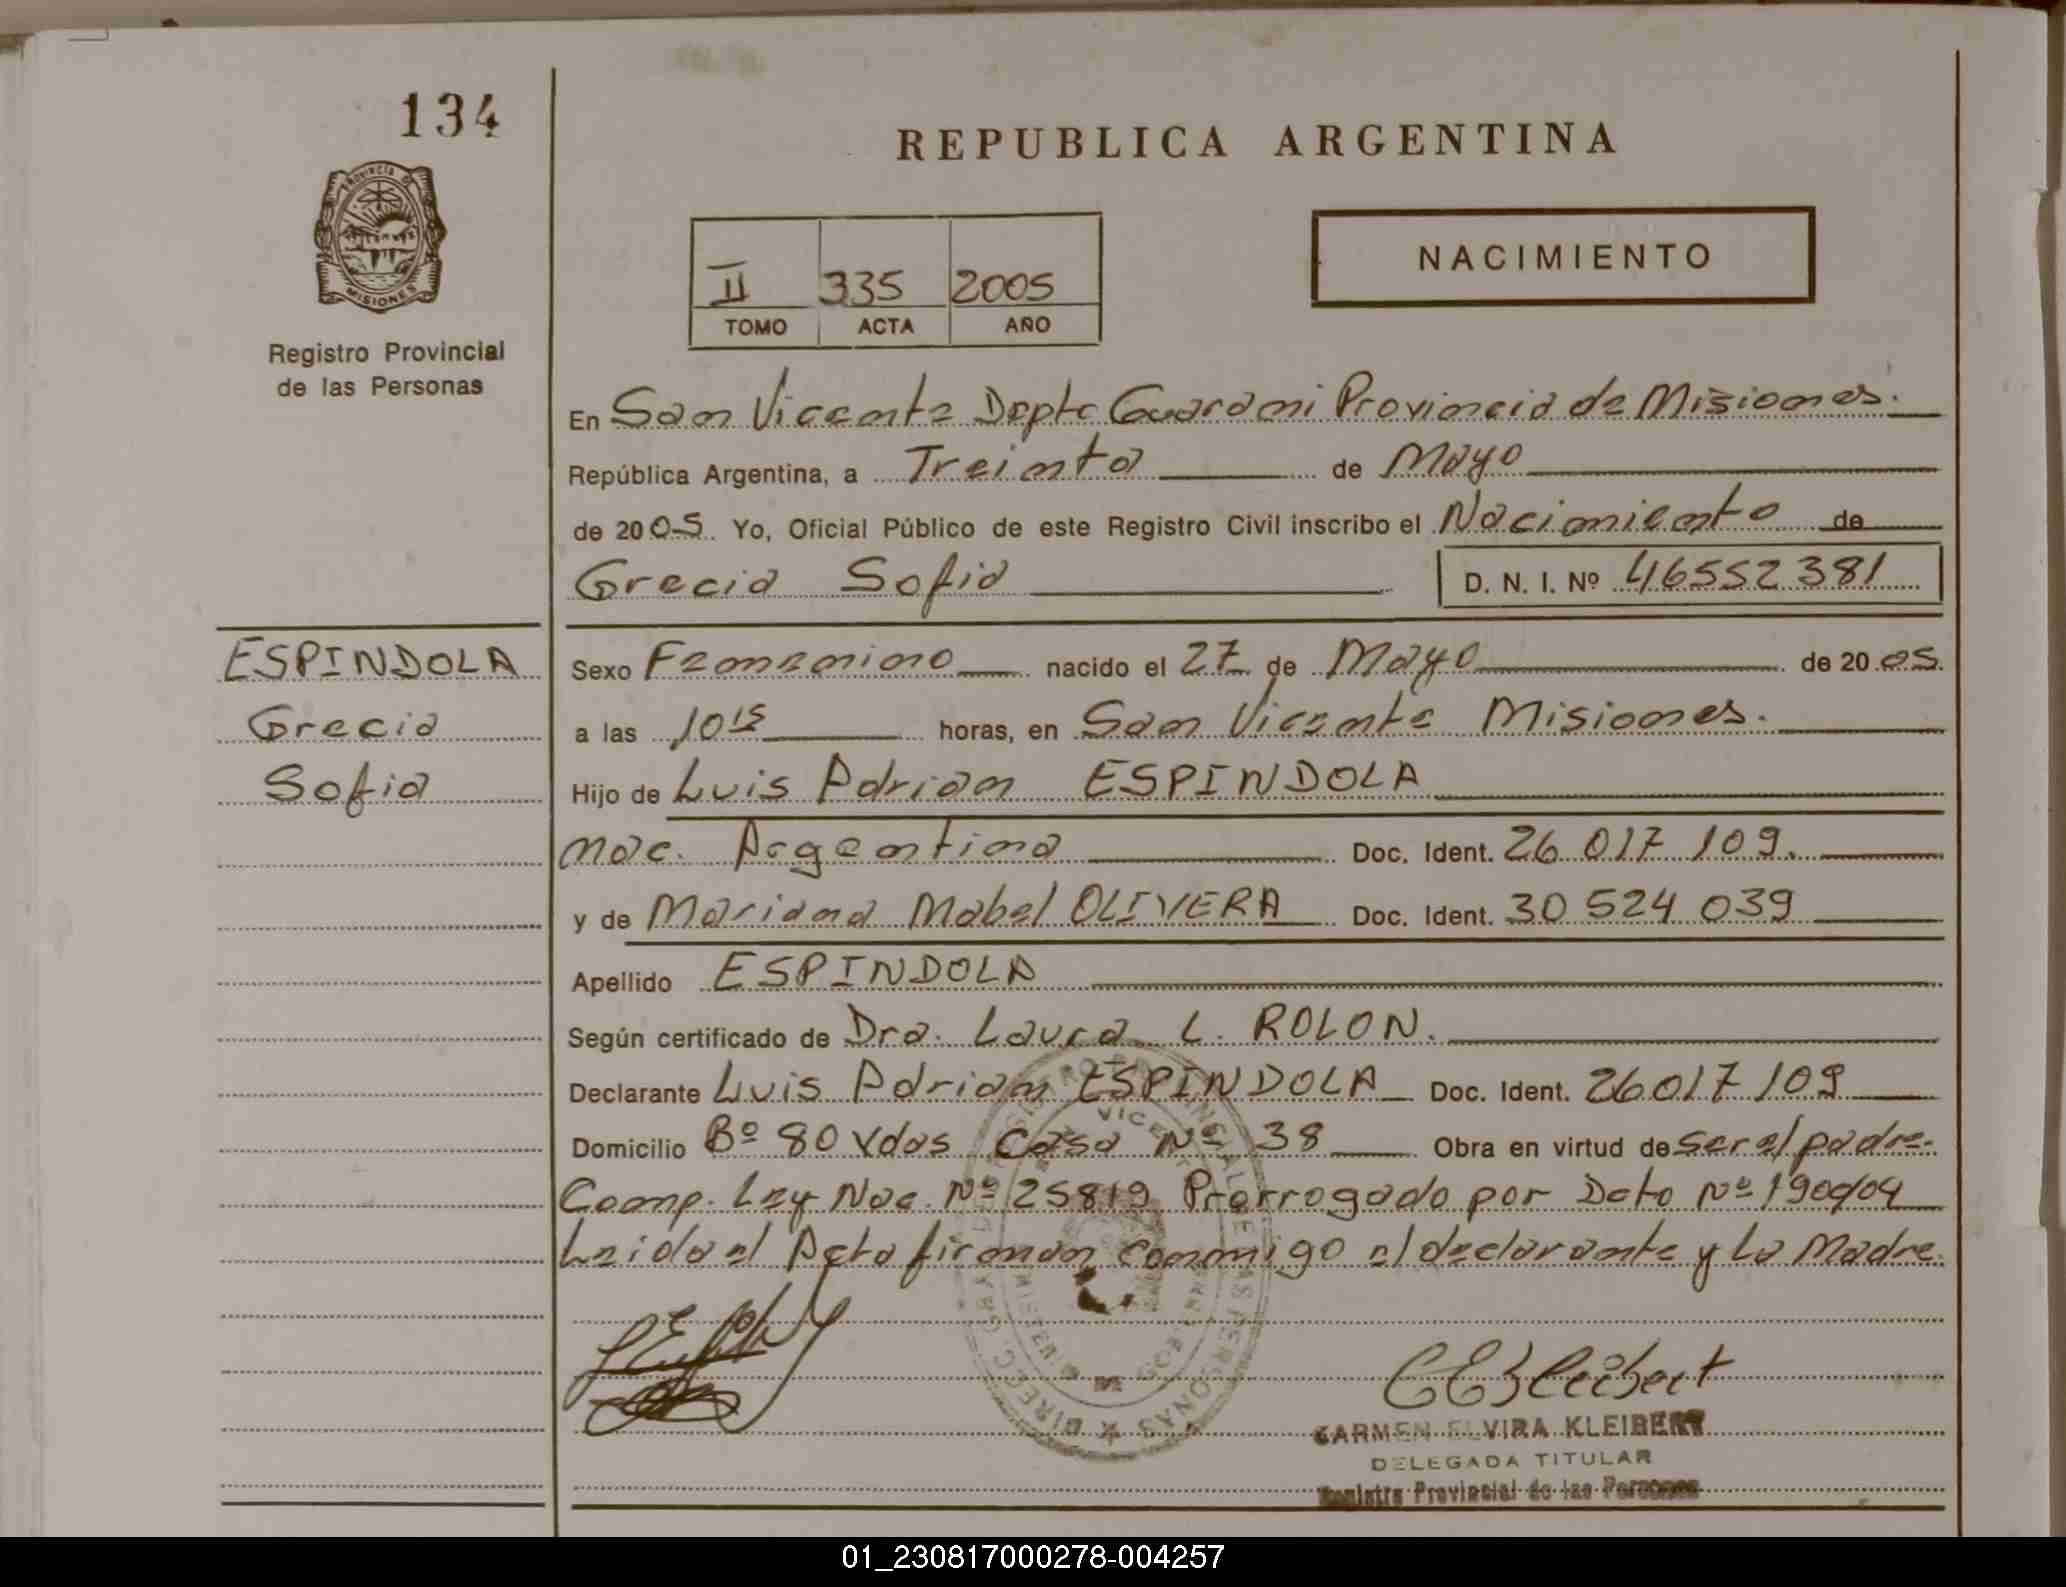 134
REPUBLICA ARGENTINA
PROVINCIA DE
MISIONES
Registro Provincial
de las Personas
II 335 2005
TOMO ACTA AÑO
NACIMIENTO
En San Vicente Dpto Guarani Provincia de Misiones.
República Argentina, a Treinta de Mayo
de 2005. Yo, Oficial Público de este Registro Civil inscribo el Nacimiento de
Grecia Sofia D. N. I. Nº 46552381
ESPINDOLA
Grecia
Sofia
Sexo Femenino nacido el 27 de Mayo de 2005
a las 10 15 horas, en San Vicente Misiones.
Hijo de Luis Adrian ESPINDOLA
nac. Argentina Doc. Ident. 26 017 109.
y de Mariana Mabel OLIVERA Doc. Ident. 30 524 039
Apellido ESPINDOLA
Según certificado de Dra. Laura L. ROLON.
Declarante Luis Adrian ESPINDOLA Doc. Ident. 26017109
Domicilio Bº 80 Vdas Casa Nº 38 Obra en virtud de ser el padre.
Comp. Ley Nac. Nº 25819 Prorrogado por Dcto Nº 1900/04
Leida el Acta firman conmigo el declarante y la Madre.
CEKleibert
CARMEN ELVIRA KLEIBERT
DELEGADA TITULAR
Registro Provincial de las Personas
01_230817000278-004257